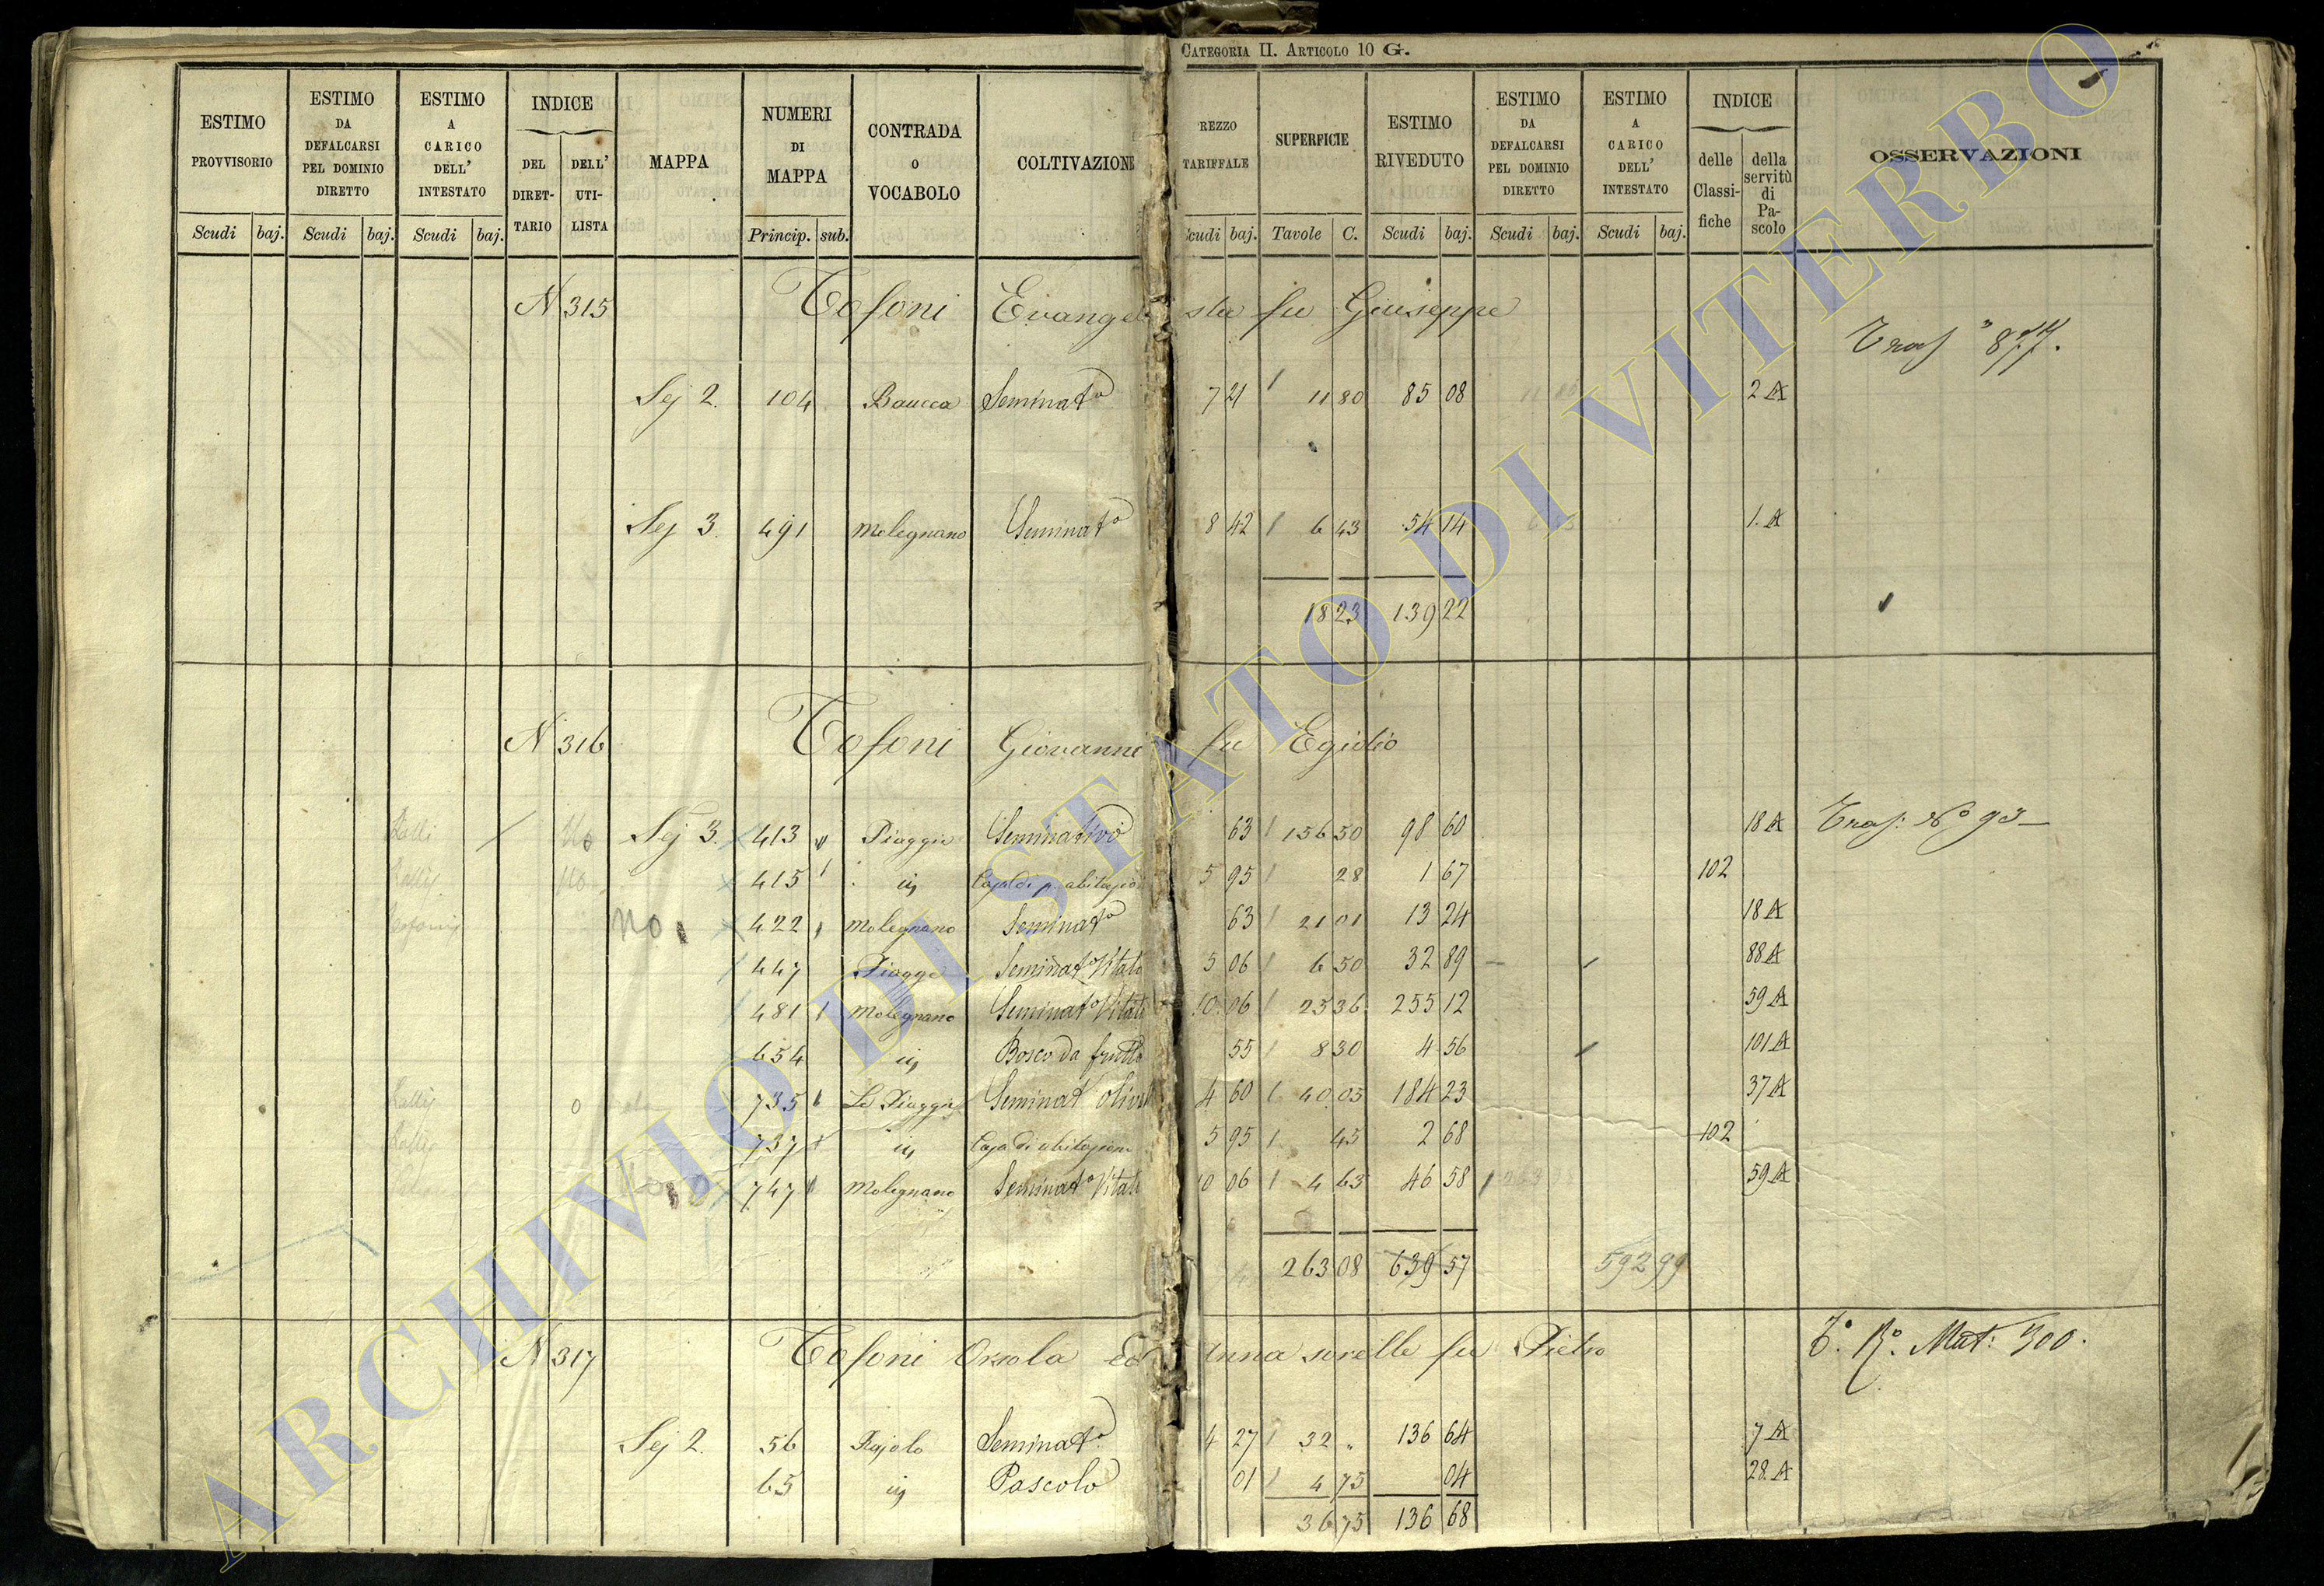 CATEGORIA II. ARTICOLO 10 G.
ESTIMO PROVVISORIO Scudi baj.
ESTIMO DA DEFALCARSI PEL DOMINIO DIRETTO Scudi baj.
ESTIMO A CARICO DELL' INTESTATO Scudi baj.
INDICE DEL DIRETTARIO DELL' UTILISTA
MAPPA
NUMERI DI MAPPA Princip. sub.
CONTRADA O VOCABOLO
COLTIVAZIONE
REZZO TARIFFALE cudi baj.
SUPERFICIE Tavole C.
ESTIMO RIVEDUTO Scudi baj.
ESTIMO DA DEFALCARSI PEL DOMINIO DIRETTO Scudi baj.
ESTIMO A CARICO DELL' INTESTATO Scudi baj.
INDICE delle Classifiche della servitù di Pascolo
OSSERVAZIONI
N 315 Tosoni Evangelista fu Giuseppe
Sez 2. 104 Baucca Seminato 7 21 11 80 85 08 2 A
Sez 3. 491 Molegnano Seminato 8 42 6 43 54 14 1. A
18 23 139 22
N 316 Tosoni Giovanni fu Egidio
Sez 3. 413 Piaggie Seminativo 63 156 50 98 60 18 A Tras: No 93
415 Casa di p. abitazion 5 95 28 1 67 102
no 422 Molegnano Seminato 63 21 01 13 24 18 A
447 Piagge Seminato Vitato 5 06 6 50 32 89 88 A
481 Molegnano Seminato Vitato 10 06 25 36 255 12 59 A
654 Bosco da frutto 55 8 30 4 56 101 A
735 Le Piaggie Seminat olivat 4 60 40 05 184 23 37 A
737 Casa di abitazione 5 95 45 2 68 102
747 Molegnano Seminato Vitato 10 06 4 63 46 58 59 A
263 08 639 57 592 99
N 317 Tosoni Orsola ed Anna sorelle fu Pietro Mat: 300.
Sez 2. 56 Pajolo Seminato 4 27 32 " 136 64 7 A
65 Pascolo 01 4 75 04 28 A
36 75 136 68
ARCHIVIO DI STATO DI VITERBO